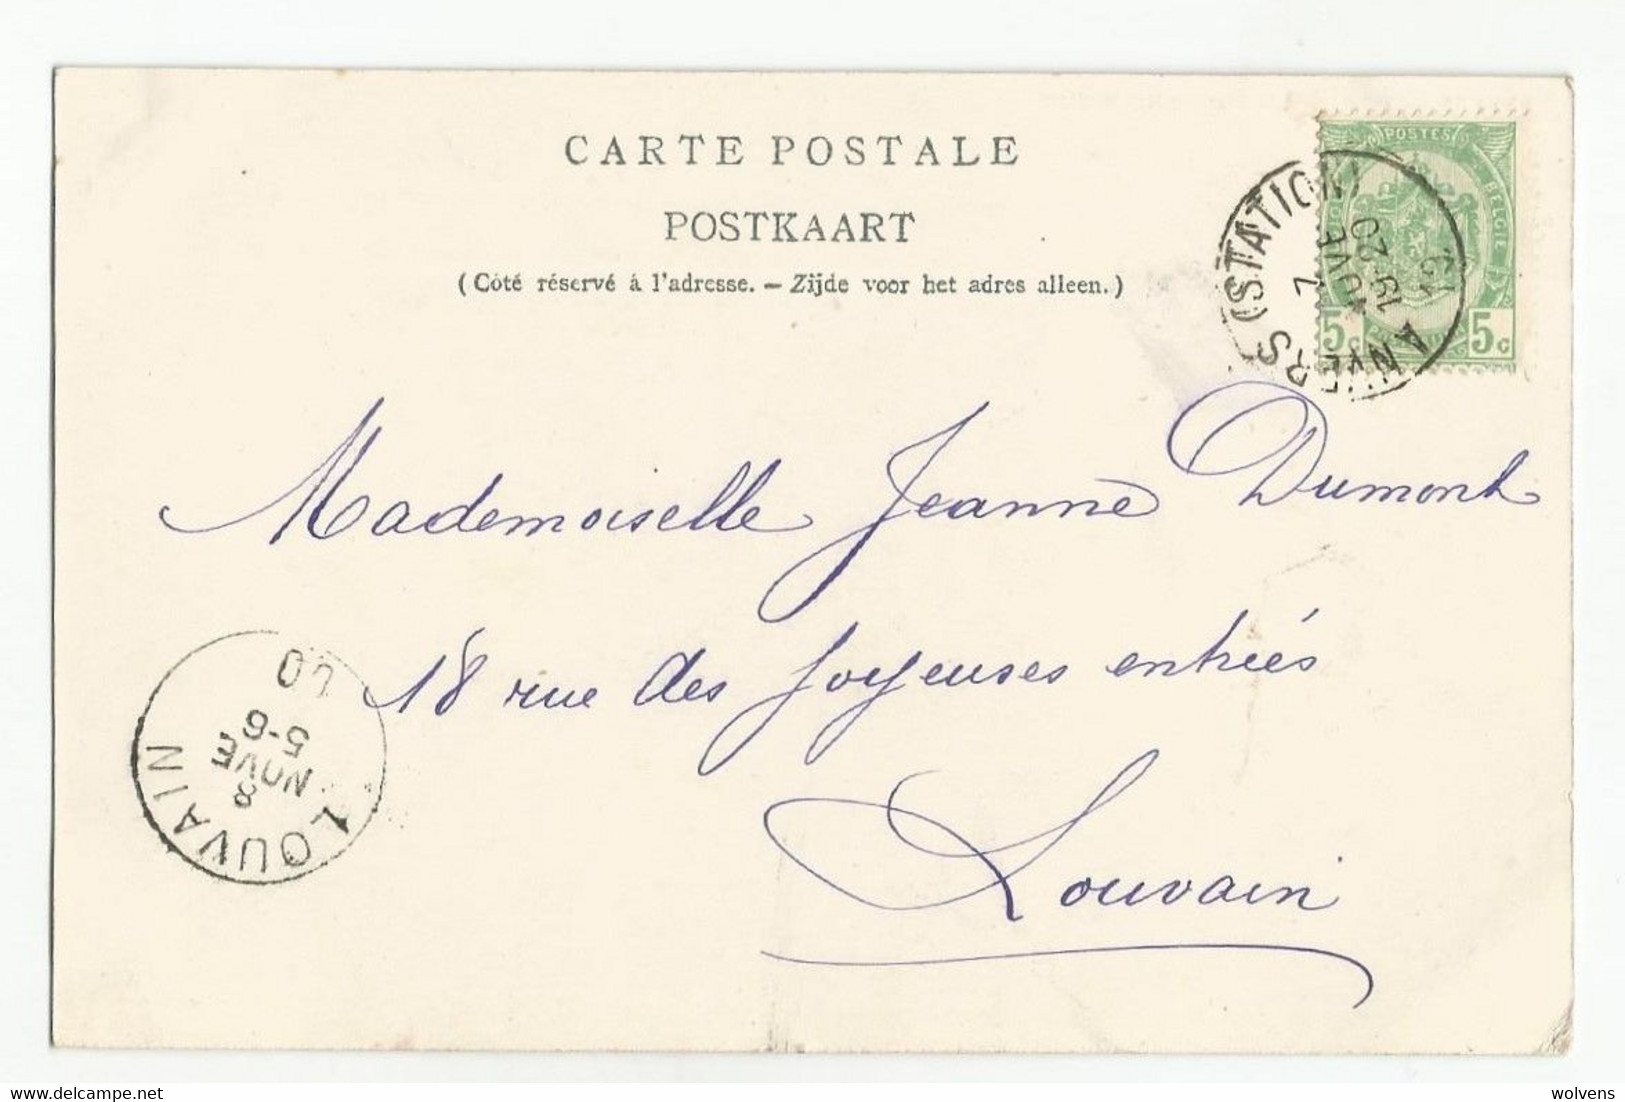 CARTE POSTALE
POSTKAART
(Côté réservé à l'adresse. — Zijde voor het adres alleen.)
POSTES
BELGIE
5c 5c
ANVERS (STATION)
7
NOVE
18-20
Mademoiselle Jeanne Dumont
18 rue des Joyeuses entrées
Louvain
LOUVAIN
8
NOVE
5-6
00
wolvens